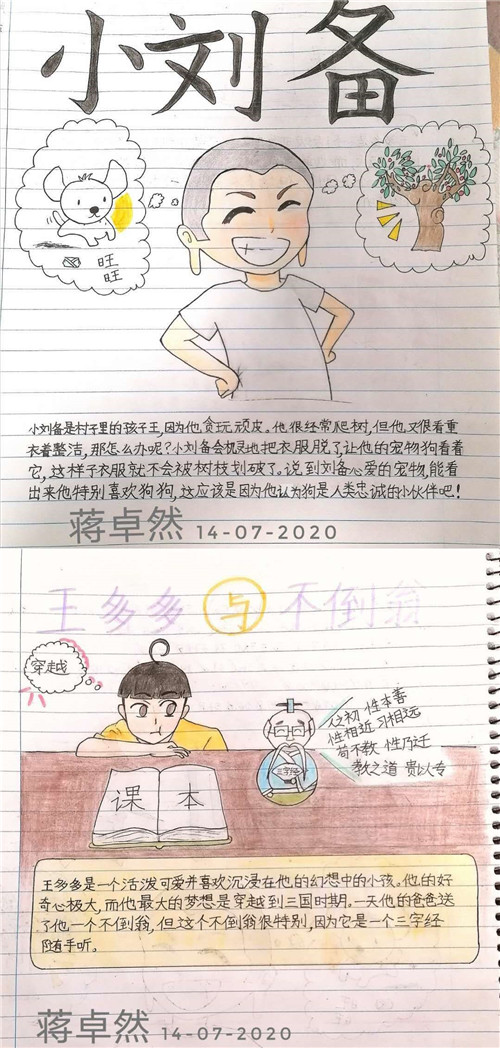 小刘备
旺
旺
小刘备是村子里的孩子王,因为他贪玩顽皮。他很经常爬树,但他又很看重
衣着整洁,那怎么办呢?小刘备会机灵地把衣服脱了让他的宠物狗看着
它,这样子衣服就不会被树枝划破了。说到刘备心爱的宠物,能看
出来他特别喜欢狗狗,这应该是因为他认为狗是人类忠诚的小伙伴吧!
蒋卓然 14-07-2020
王多多与不倒翁
穿越
人之初 性本善
性相近 习相远
苟不教 性乃迁
教之道 贵以专
三字经
课本
王多多是一个活泼可爱并喜欢沉浸在他的幻想中的小孩。他的好
奇心极大,而他最大的梦想是穿越到三国时期。一天他的爸爸送
了他一个不倒翁,但这个不倒翁很特别,因为它是一个三字经
随手听。
蒋卓然 14-07-2020